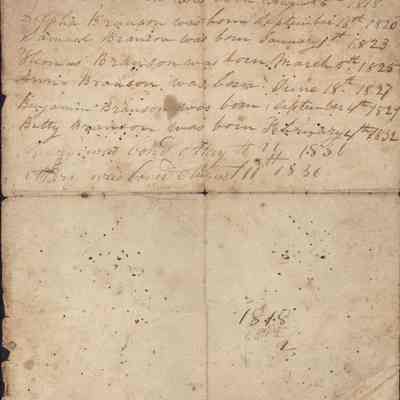 was born August 1818
Branson was born September 16th 1820
Samuel Branson was born January 1th 1823
Thomas Branson was born March 8th 1825
Ann Branson was born June 18th 1827
Benjamin Branson was born September 4th 1829
Betty Branson was born February 4th 1832
1830
was born 11th 1830
1848
2